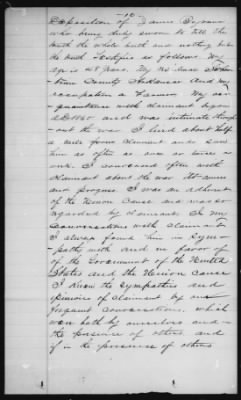 -10-
Deposition of Daniel
who being duly sworn to tell the
truth the whole truth and nothing but
the truth Testifies as follows. My
age is years. My residence
County Arkansas and my
occupation a Farmer. My acquaintance
with claimant began
AD 1860 and was intimate through
out the war. I lived about half
a mile from claimant and saw
him as often as two or six times a
week. I conversed often with
claimant about the war its causes
and progress I was an adherent
of the Union Cause and was so
regarded by claimant. In my
Conversations with claimant
I always found him in Sympathy
with and in favor of
of the Government of the United
States and the Union Cause
I knew the Sympathies and
opinions of claimant by our
frequent conversations, which
were both by ourselves and in
the presence of others, and
the presence of others